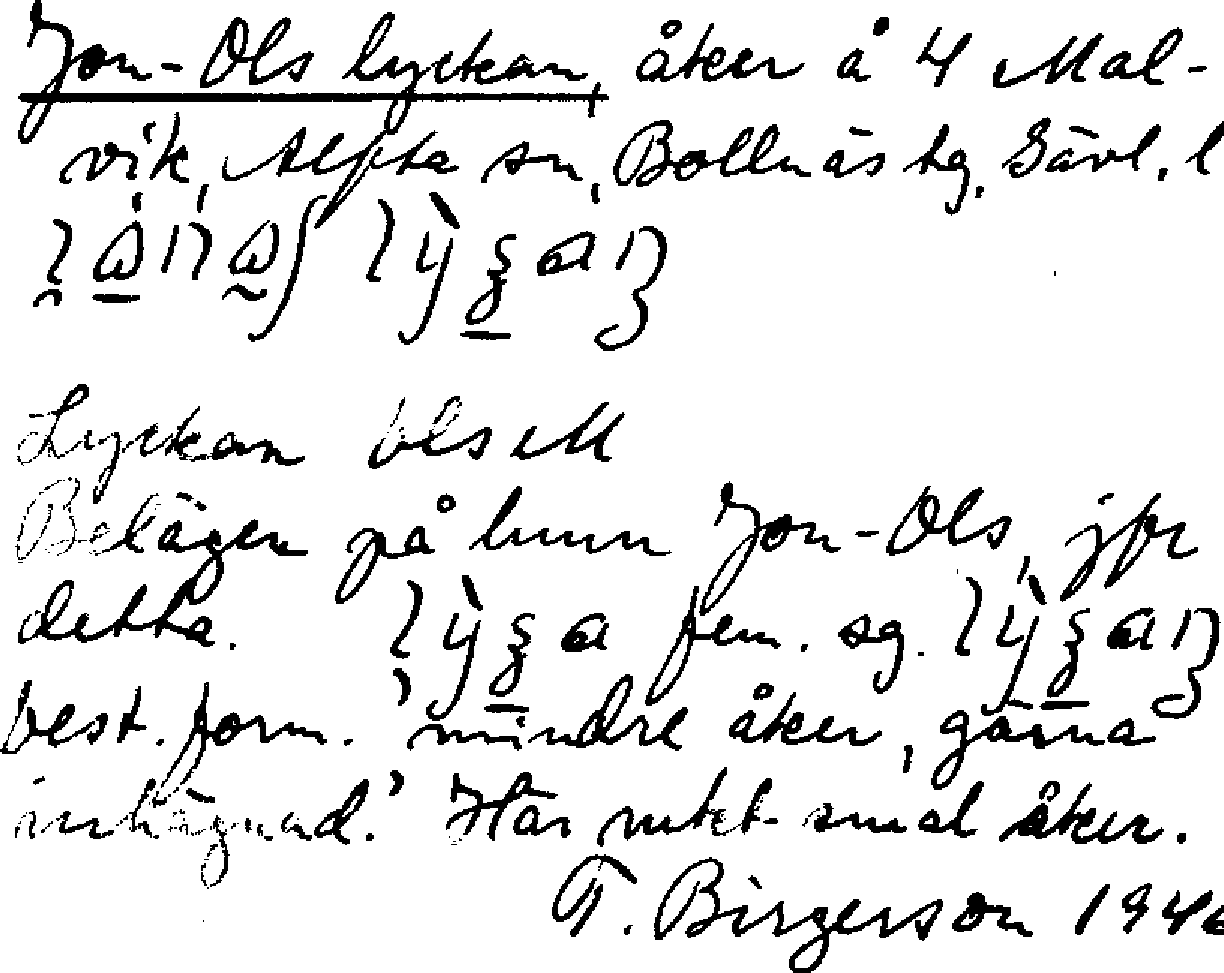 Jon-Ols lyckan, åker å 4 Mal-
vik, Alfta sn, Bollnäs tg. Gävl. l
Lyckan bls M
Belägen på hmn Jon-Ols, jfr
detta. fem. sg.
best. form. 'mindre åker, gärna
inhägnad.' Här mkt smal åker.
T. Birgerson 1946